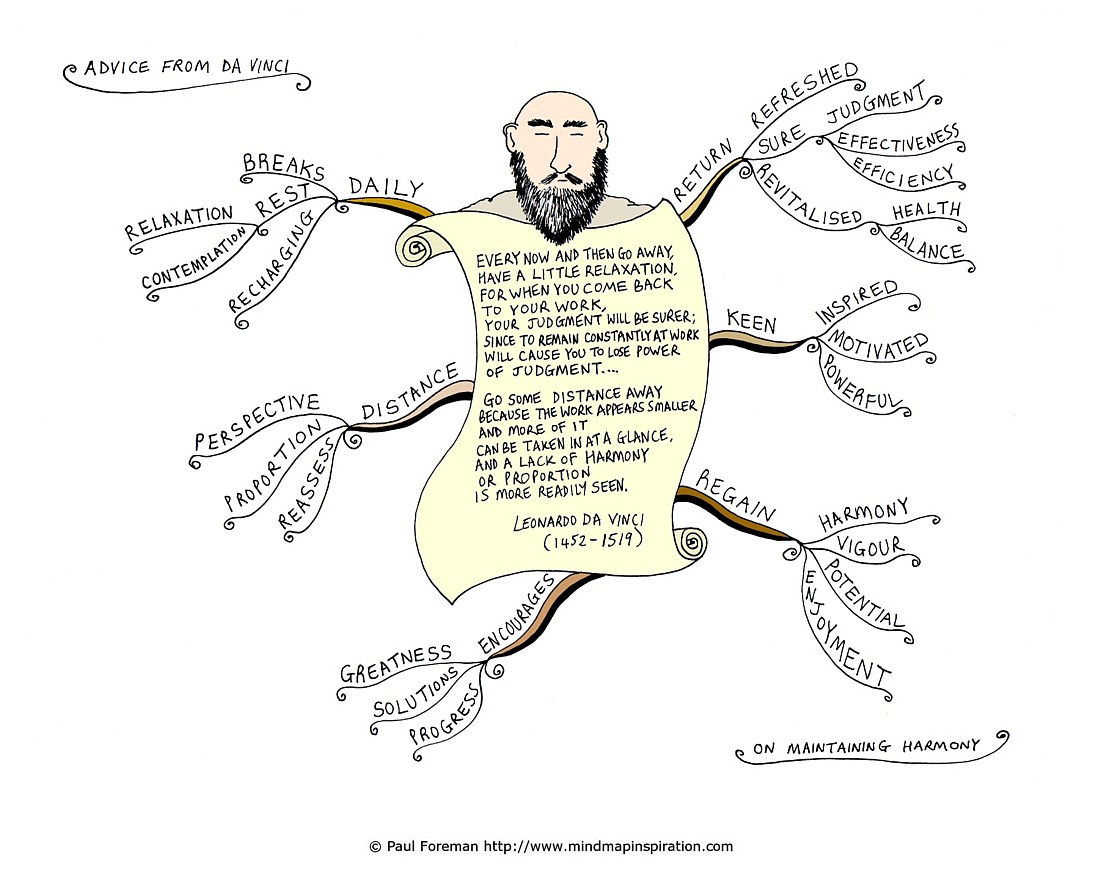 ADVICE FROM DA VINCI
DAILY
BREAKS
REST
RELAXATION
CONTEMPLATION
RECHARGING
RETURN
REFRESHED
SURE
JUDGMENT
EFFECTIVENESS
EFFICIENCY
REVITALISED
HEALTH
BALANCE
EVERY NOW AND THEN GO AWAY,
HAVE A LITTLE RELAXATION,
FOR WHEN YOU COME BACK
TO YOUR WORK,
YOUR JUDGMENT WILL BE SURER;
SINCE TO REMAIN CONSTANTLY AT WORK
WILL CAUSE YOU TO LOSE POWER
OF JUDGMENT....
GO SOME DISTANCE AWAY
BECAUSE THE WORK APPEARS SMALLER
AND MORE OF IT
CAN BE TAKEN IN AT A GLANCE,
AND A LACK OF HARMONY
OR PROPORTION
IS MORE READILY SEEN.
LEONARDO DA VINCI
(1452-1519)
KEEN
INSPIRED
MOTIVATED
POWERFUL
DISTANCE
PERSPECTIVE
PROPORTION
REASSESS
REGAIN
HARMONY
VIGOUR
POTENTIAL
ENJOYMENT
ENCOURAGES
GREATNESS
SOLUTIONS
PROGRESS
ON MAINTAINING HARMONY
© Paul Foreman http://www.mindmapinspiration.com